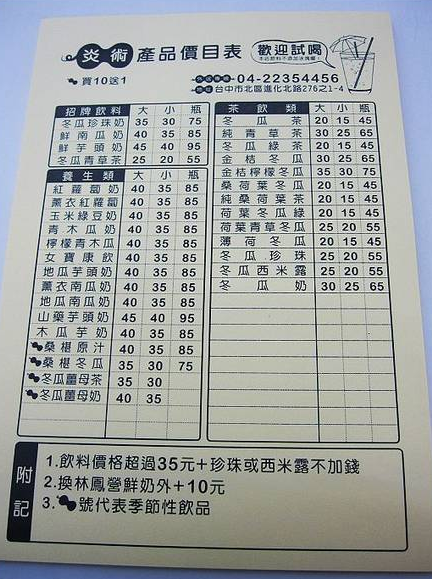 炎術 產品價目表 歡迎試喝
買10送1
04-22354456
台中市北區進化北路276之1-4
招牌飲料 大 小 瓶
冬瓜珍珠奶 35 30 75
鮮南瓜奶 40 35 85
鮮芋頭奶 45 40 95
冬瓜青草茶 25 20 55
養生類 大 小 瓶
紅蘿蔔奶 40 35 85
薰衣紅蘿蔔 40 35 85
玉米綠豆奶 40 35 85
青木瓜奶 40 35 85
檸檬青木瓜 40 35 85
女寶康飲 40 35 85
地瓜芋頭奶 40 35 85
薰衣南瓜奶 40 35 85
地瓜南瓜奶 40 35 85
山藥芋頭奶 45 40 95
木瓜芋奶 40 35 85
桑椹原汁 40 35 85
桑椹冬瓜 35 30 75
冬瓜薑母茶 35 30
冬瓜薑母奶 40 35
茶飲類 大 小 瓶
冬瓜茶 20 15 45
純青草茶 30 25 65
冬瓜綠茶 20 15 45
金桔冬瓜 30 25 65
金桔檸檬冬瓜 35 30 75
桑荷葉冬瓜 20 15 45
純桑荷葉茶 20 15 45
荷葉冬瓜綠 20 15 45
荷葉青草冬瓜 25 20 55
薄荷冬瓜 20 15 45
冬瓜珍珠 25 20 55
冬瓜西米露 25 20 55
冬瓜奶 30 25 65
附記
1.飲料價格超過35元+珍珠或西米露不加錢
2.換林鳳營鮮奶外+10元
3. 號代表季節性飲品